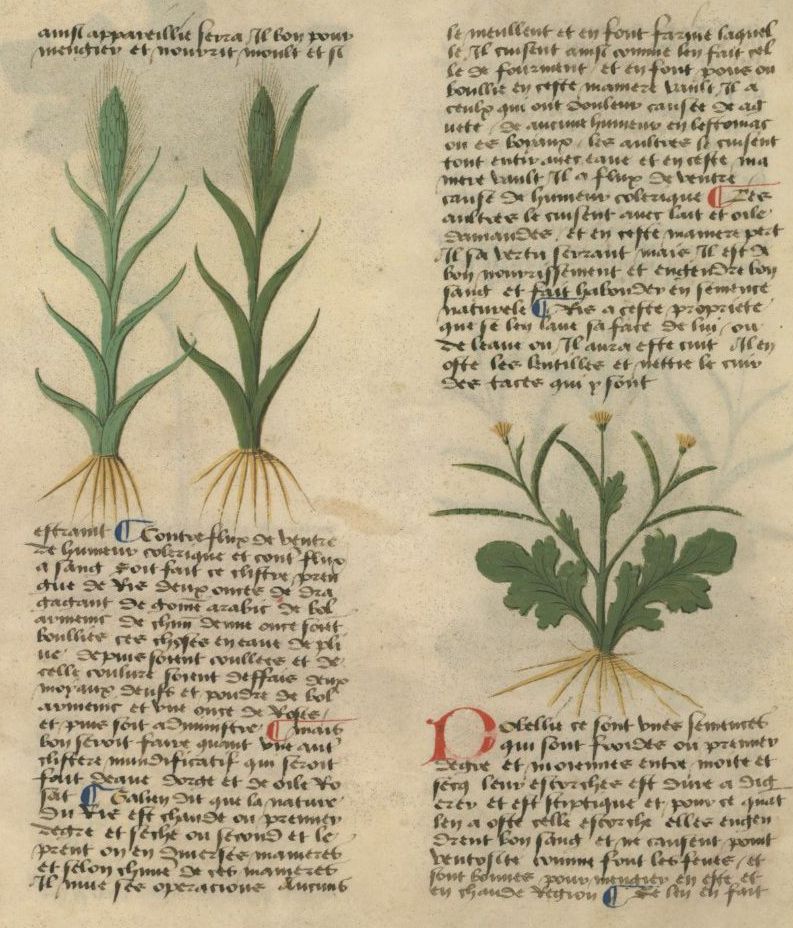 ainsi appareillie sera Il bon pour
mengier et nourrit moult et si
estraint ¶ Contre flux de ventre
de humeur colerique et cont' flux
a sang soit fait ce clistre pren
gne de Ris deux onces de dra
gagant de gome arabic de bol
armenic de chun demie once soient
boullies ces choses en eaue de plu
ie depuis soient coullees et de
celle couleure soient deffais deux
moyaux deufs et pouldre de bol
armenic et vne once de Roses
et puis soit administre ¶ mais
bon seroit faire quant vng aut'
clistere mundificatif qui seroit
fait deaue dorge et de oile Ro
sat ¶ Galien dit que la nature
du Ris est chaude ou premier
degre et seche ou second et le
prent on en diuerses manieres
et selon chune de ces manieres
Il mue ses operacions Aucuns
le meullent et en font farine laquel
le Il cuisent ainsi comme len fait cel
le de fourment et en font pous ou
boullie en ceste maniere vault Il a
ceulx qui ont douleur causee de ag
uete de aucune humeur en lestomac
ou es boyaux les aultres le cuisent
tout entir auec eaue et en ceste ma
niere vault Il a flux de ventre
cause de humeur colerique ¶ Les
aultres le cuisent auec lait et oile
damandes et en ceste maniere pert
Il sa vertu serrant mais Il est de
bon nourrissement et engendre bon
sang et fait habonder en semence
naturele ¶ Ris a ceste propriete
que se len laue sa face de lui ou
de leaue ou Il aura este cuit Il en
oste les lentilles et nettie le cuir
des taces qui y sont
Pobellie ce sont vnes semences
qui sont froides ou premier
degre et moiennes entre moite et
secq leur escorches est dure a dig
erer et est stiptique et pour ce quat
len a oste celle escorche elles engen
drent bon sang et ne causent point
ventosite comme font les feues et
sont bonnes pour mengier en este et
en chaude Region ¶ Se len en fait